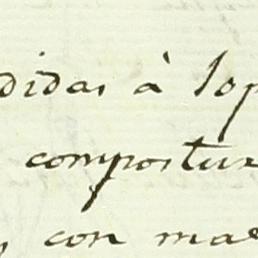 didas à lop
compostur
con ma